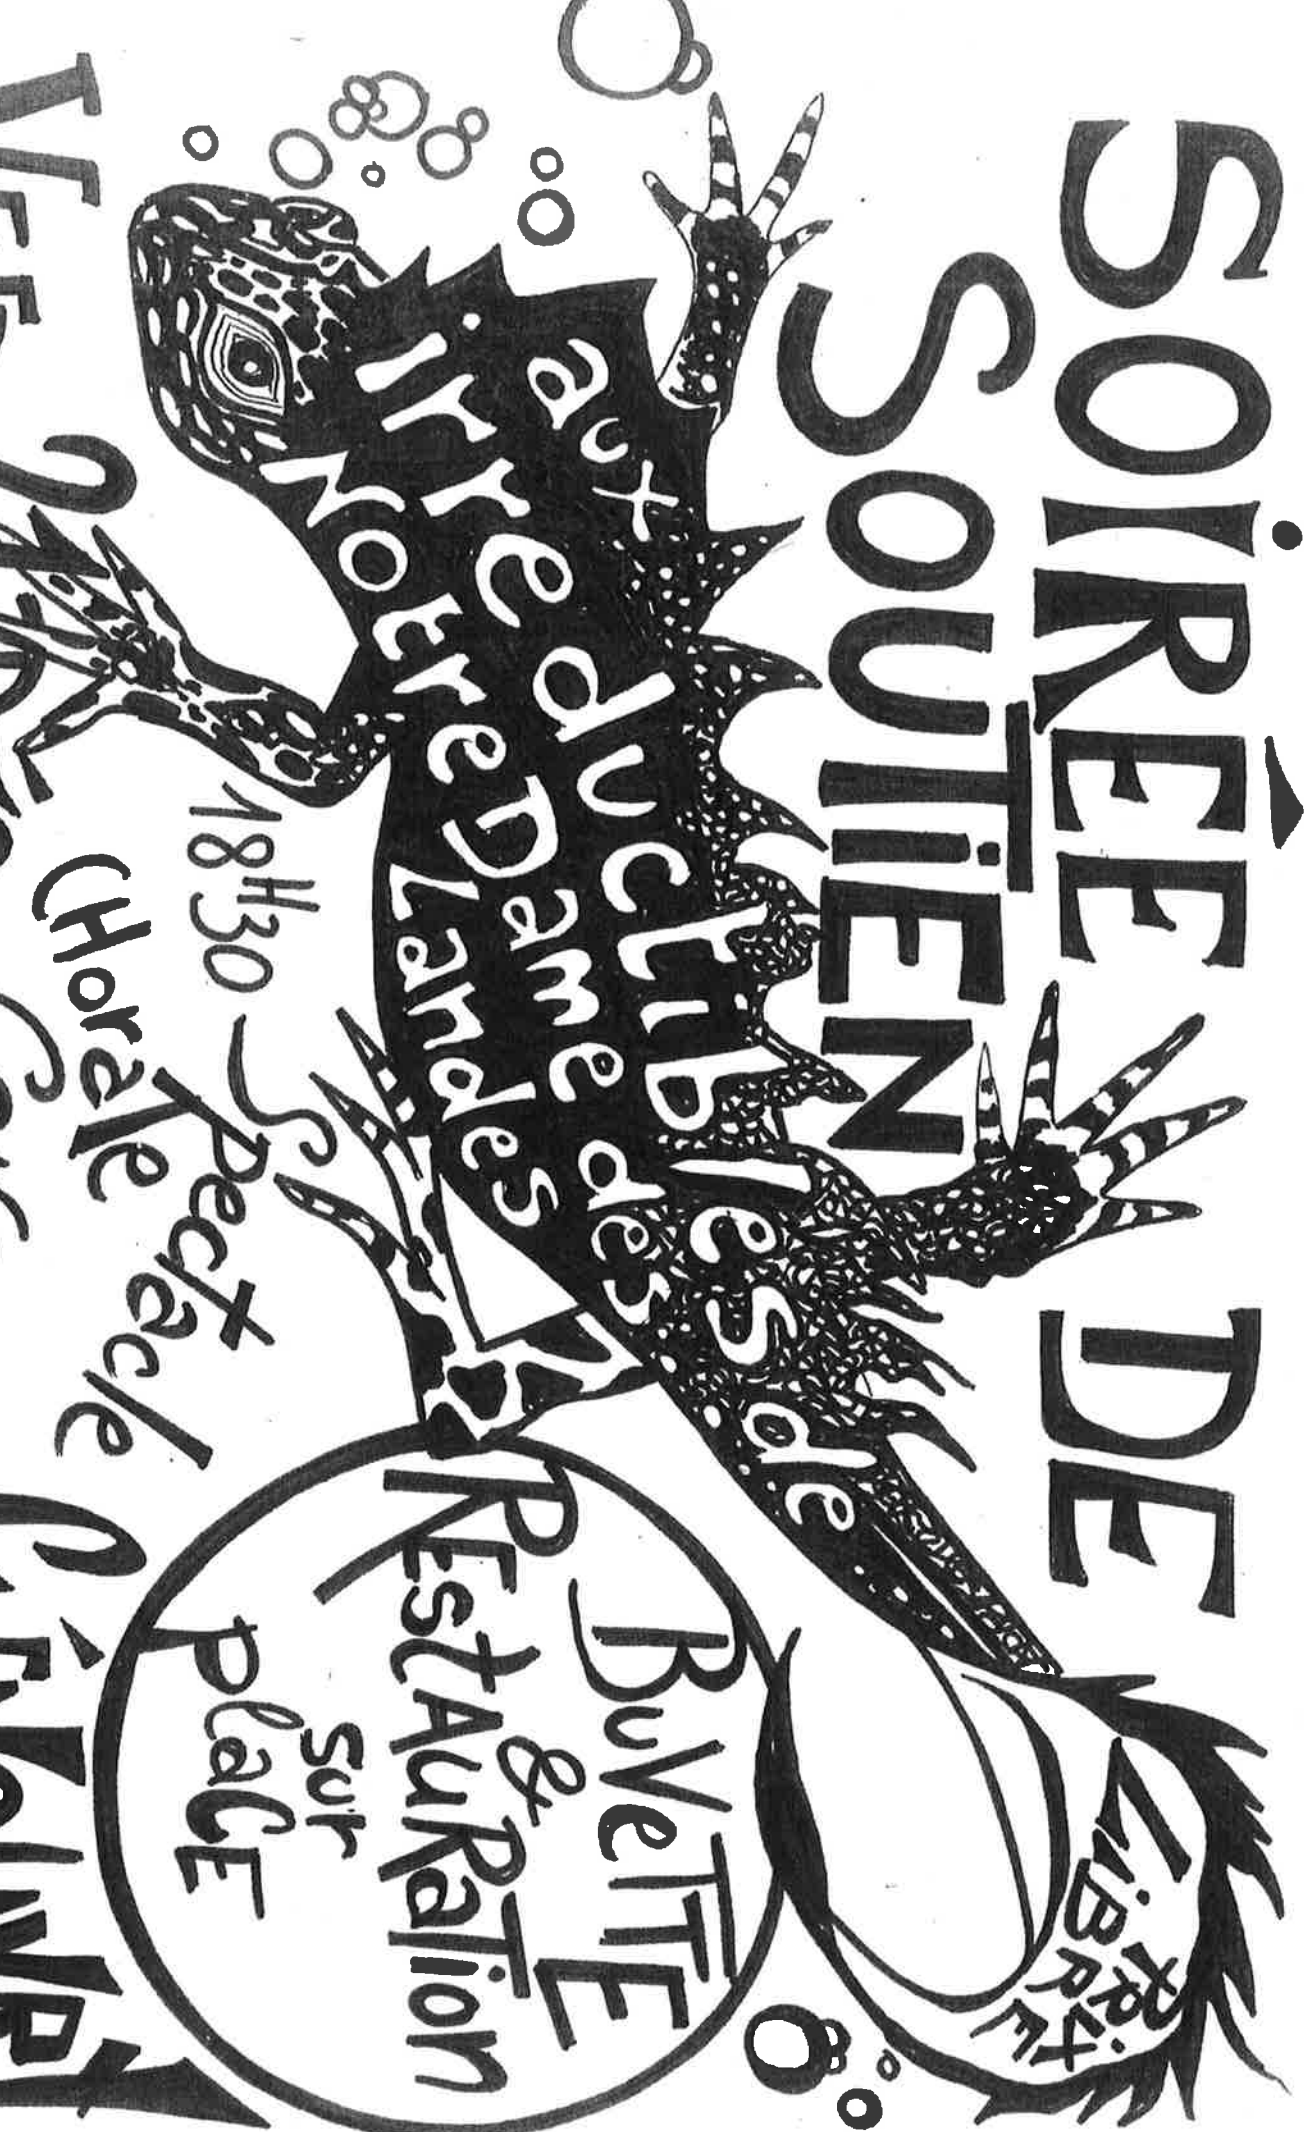 SOIRÊE DE
SOUTiEN
aux
irreductibles de
Notre Dame des
Landes
LiBRE
PRiX
BuVeTTE
&
REstAuRaTion
sur
PlaCE
18H30
Spectacle
CHorale